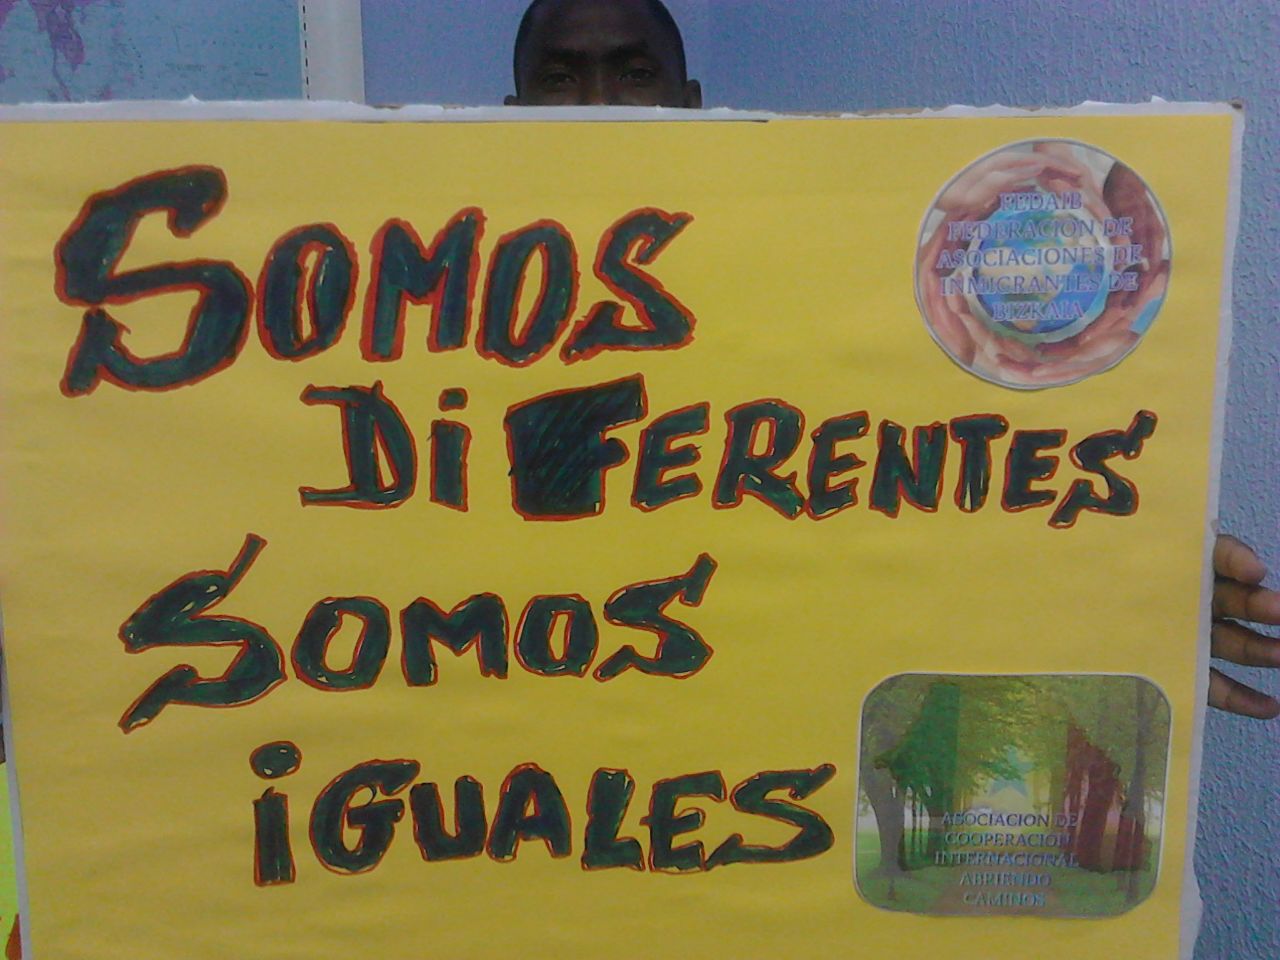 SOMOS
DiFERENTES
SOMOS
iGUALES
FEDAIB
FEDERACION DE
ASOCIACIONES DE
INMIGRANTES DE
BIZKAIA
ASOCIACION DE
COOPERACION
INTERNACIONAL
ABRIENDO
CAMINOS